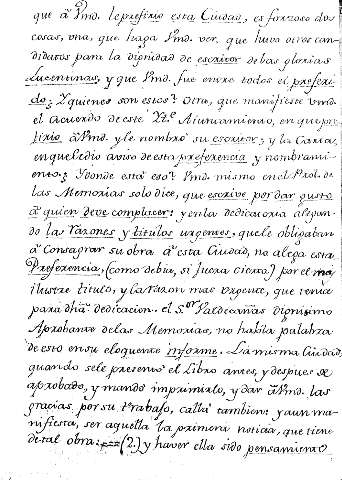 que à Vmd. le prefirió esta Ciudad, es forzoso dos
cosas, una, que haga Vmd. ver, que huvo otros can-
didatos para la dignidad de escritor de las glorias
Lucentinas, y que Vmd. fue entre todos el preferi-
do; Y quienes son estos? Otra, que manifieste Vmd.
el acuerdo de este Ill.e Aiuntamiento, en que pre-
firió à Vmd. y le nombró su escritor; y la Carta,
en que le dió aviso de esta preferencia y nombrami-
ento. Y donde está eso? Vmd. mismo en el Prol. de
las Memorias solo dice, que escrive por dar gusto
à quien deve complacer; y en la dedicatoria alegan-
do las razones y titulos urgentes, que le obligaban
à consagrar su obra à esta Ciudad, no alega esta
Preferencia, (como debia, si fuera cierta) por el mas
ilustre titulo, y la razon mas urgente, que tenia
para dha dedicacion. el S.or Valdecañas dignisimo
Aprobante de las Memorias, no habla palabra
de esto en su eloquente informe. La misma Ciudad,
quando se le presentó el Libro antes, y despues de
aprobado, y mandó imprimirlo, y dar à Vmd. las
gracias por su trabajo, calla tambien: y aun ma-
nifiesta, ser aquella la primera noticia, que tiene
de tal obra: (2.) y haver ella sido pensamiento